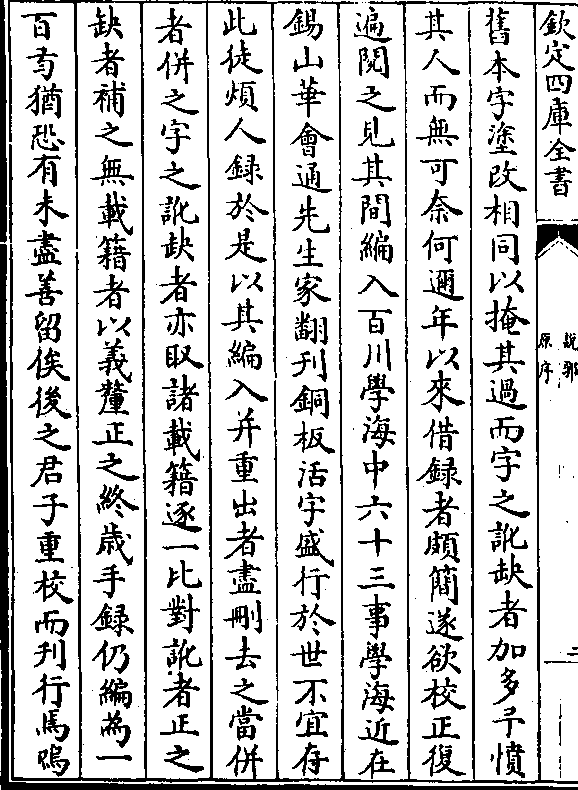 欽定四庫全書
說郛
原序
二
舊本字塗改相同以掩其過而字之訛缺者加多予憤
其人而無可奈何邇年以來借録者頗簡遂欲校正復
遍閲之見其間編入百川學海中六十三事學海近在
錫山華會通先生家翻刊銅板活字盛行於世不宜存
此徒煩人録於是以其編入并重出者盡刪去之當併
者併之字之訛缺者亦取諸載籍逐一比對訛者正之
缺者補之無載籍者以義釐正之終歳手録仍編為一
百卷猶恐有未盡善留俟後之君子重校而刊行焉嗚